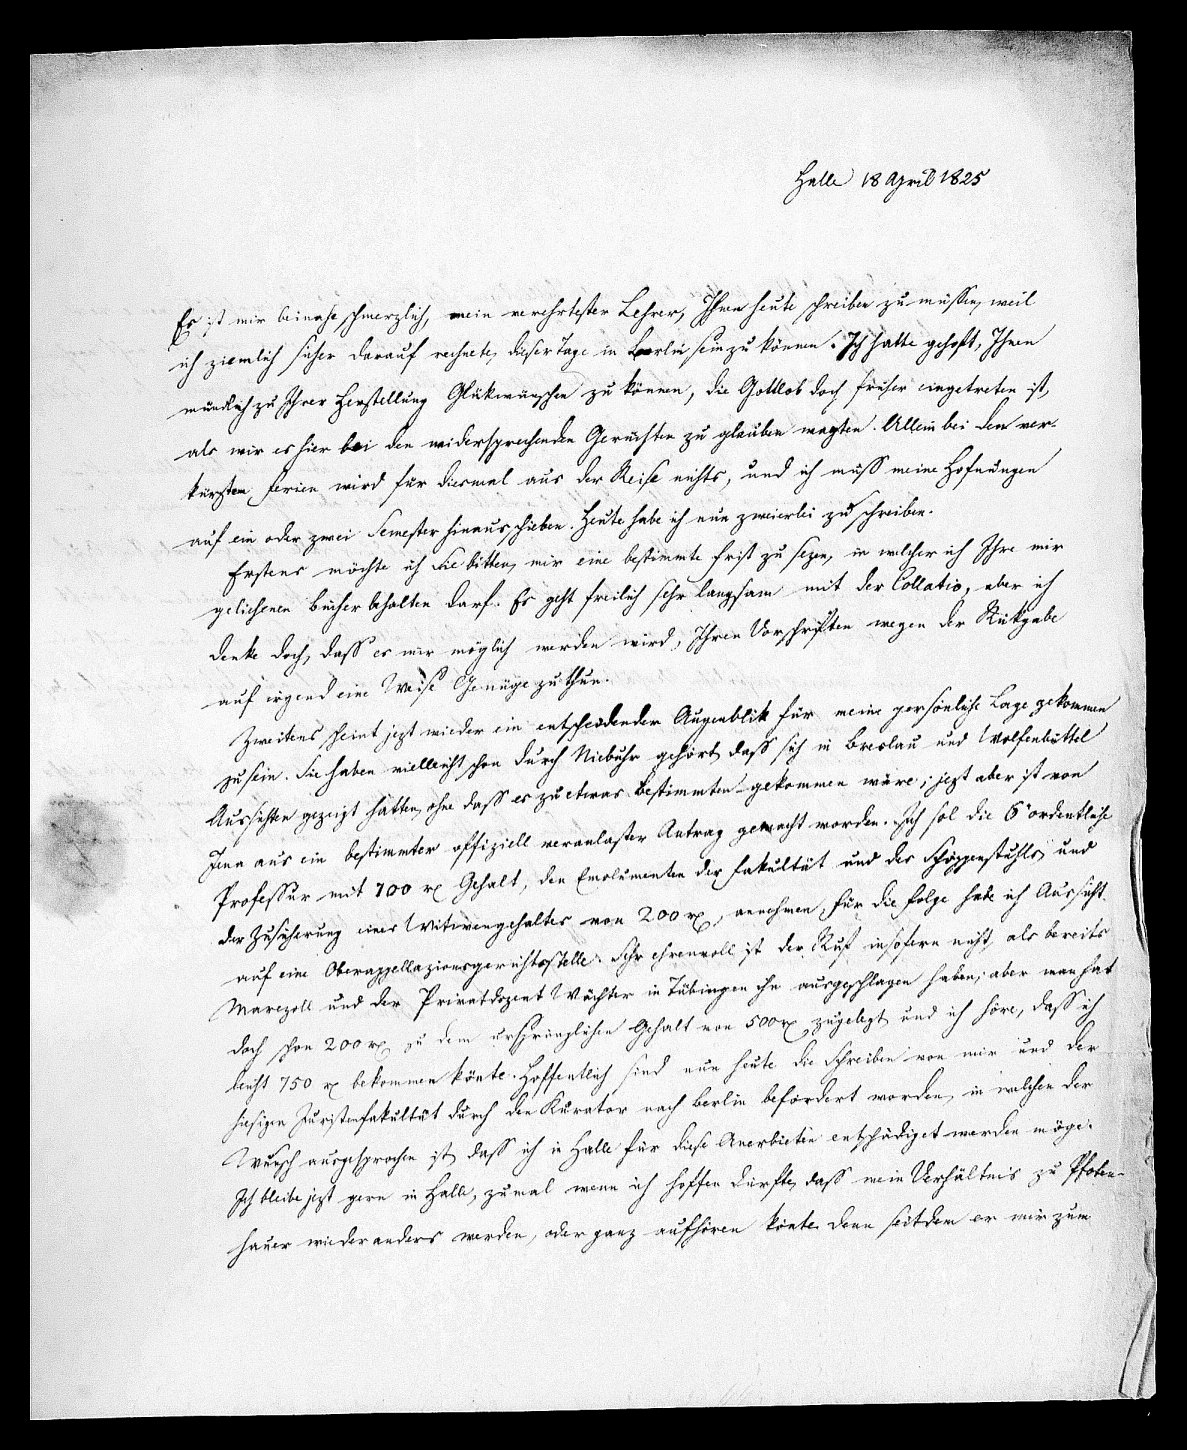 Halle 18 April 1825
Es ist mir beinahe schmerzlich, mein verehrtester Lehrer, Ihnen heute schreiben zu müssen, weil
ich ziemlich sicher darauf rechnete, dieser Tage in Berlin sein zu können. Ich hatte gehoft, Ihnen
mündlich zu Ihrer Herstellung Glükwünschen zu können, die Gottlob doch früher eingetreten ist,
als wir es hier bei den widersprechenden Gerüchten zu glauben wagten. Allein bei den ver-
kürzten Ferien wird für diesmal aus der Reise nichts, und ich muss meine Hofnungen
auf ein oder zwei Semester hinausschieben. Heute habe ich nun zweierlei zu schreiben.
Erstens möchte ich Sie bitten, mir eine bestimmte Frist zu sezen, in welcher ich Ihre mir
geliehenen Bücher behalten darf. Es geht freilich sehr langsam mit der Collatio, aber ich
denke doch, dass es mir möglich werden wird, Ihren Vorschriften wegen der Rükgabe
auf irgend eine Weise Genüge zu thun.
Zweitens scheint jezt wieder ein entscheidender Augenblik für meine persönliche Lage gekommen
zu sein. Sie haben vielleicht schon durch Niebuhr gehört, dass sich in Breslau und Wolfenbüttel
Aussichten gezeigt hätten, ohne dass es zu etwas Bestimmten gekommen wäre; jezt aber ist von
Jena aus ein bestimmter offiziell veranlaster Antrag gemacht worden. Ich sol die 6te ordentliche
Professur mit 700 rx Gehalt, den Emolumenten der Fakultät und des Schöppenstuhls, und
der Zusicherung eines Witwengehaltes von 200 rx, annehmen, für die Folge habe ich Aussicht
auf eine Oberappellazionsgerichtsstelle. Sehr ehrenvoll ist der Ruf insofern nicht, als bereits
Marezoll und der Privatdozent Wächter in Tübingen ihn ausgeschlagen haben; aber man hat
doch schon 200 rx zu dem ursprünglichen Gehalt von 500 rx zugelegt, und ich höre, dass ich
leicht 750 rx bekommen könte. Hoffentlich sind nun heute die Schreiben von mir und der
hiesigen Juristenfakultät durch den Kurator nach Berlin befördert worden, in welchen der
Wunsch ausgesprochen ist, dass ich in Halle für diese Anerbieten entschädiget werden möge.
Ich bleibe jezt gern in Halle, zumal wenn ich hoffen dürfte, dass mein Verhältnis zu Pfoten-
hauer wieder anders werden, oder ganz aufhören könte. Denn seitdem er mir zum